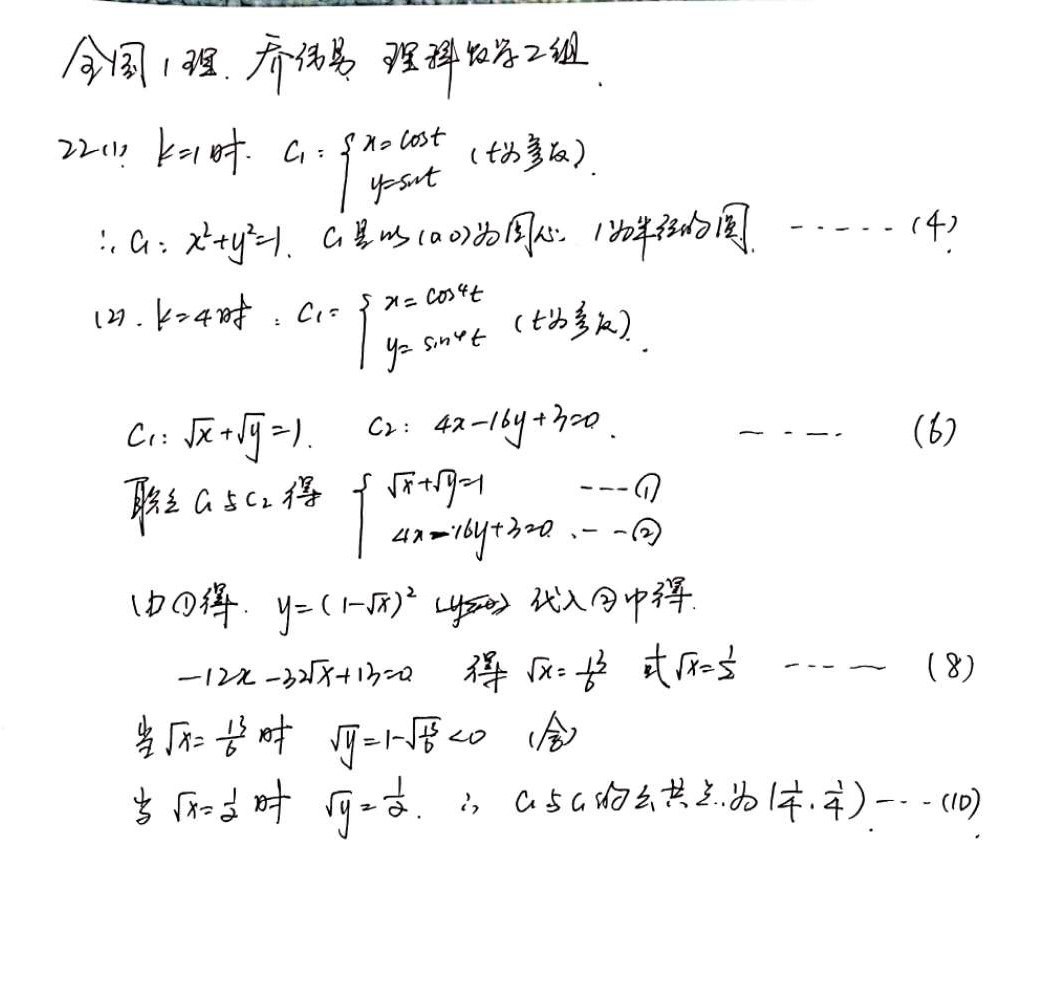 全国1理. 乔伟易 理科数学2组.
22(1) k=1时. C₁: { x=cost y=sint (t为参数).
∴ C₁: x²+y²=1. C₁是以(0 0)为圆心. 1为半径的圆. ----- (4)
(2). k=4时: C₁: { x=cos⁴t y=sin⁴t (t为参数).
C₁: √x+√y=1. C₂: 4x-16y+3=0. ---- (6)
联立C₁与C₂得 { √x+√y=1 ---① 4x-16y+3=0. --②
由①得. y=(1-√x)² 代入②中得.
-12x-32√x+13=0 得 √x=13/6 或√x=1/2 ---- (8)
当√x=13/6时 √y=1-√13/6<0 (舍)
当√x=1/2时 √y=1/2. ∴ C₁与C₁的公共点为(1/4, 1/4)---(10)